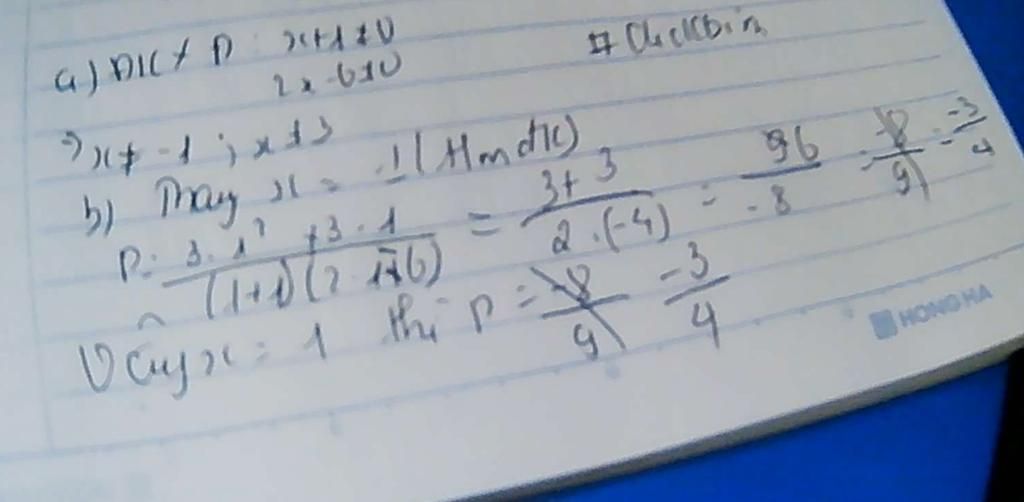 a) ĐK P: x+1≠0
2x-6≠0
=> x ≠ -1 ; x ≠ 3
b) Thay x = 1 (tmđk)
P = 3.1² + 3.1 / (1+1)(2.1-6) = 3+3 / 2.(-4) = 6 / -8 = -3/4
Vậy x = 1 thì P = -3/4
HONG HA